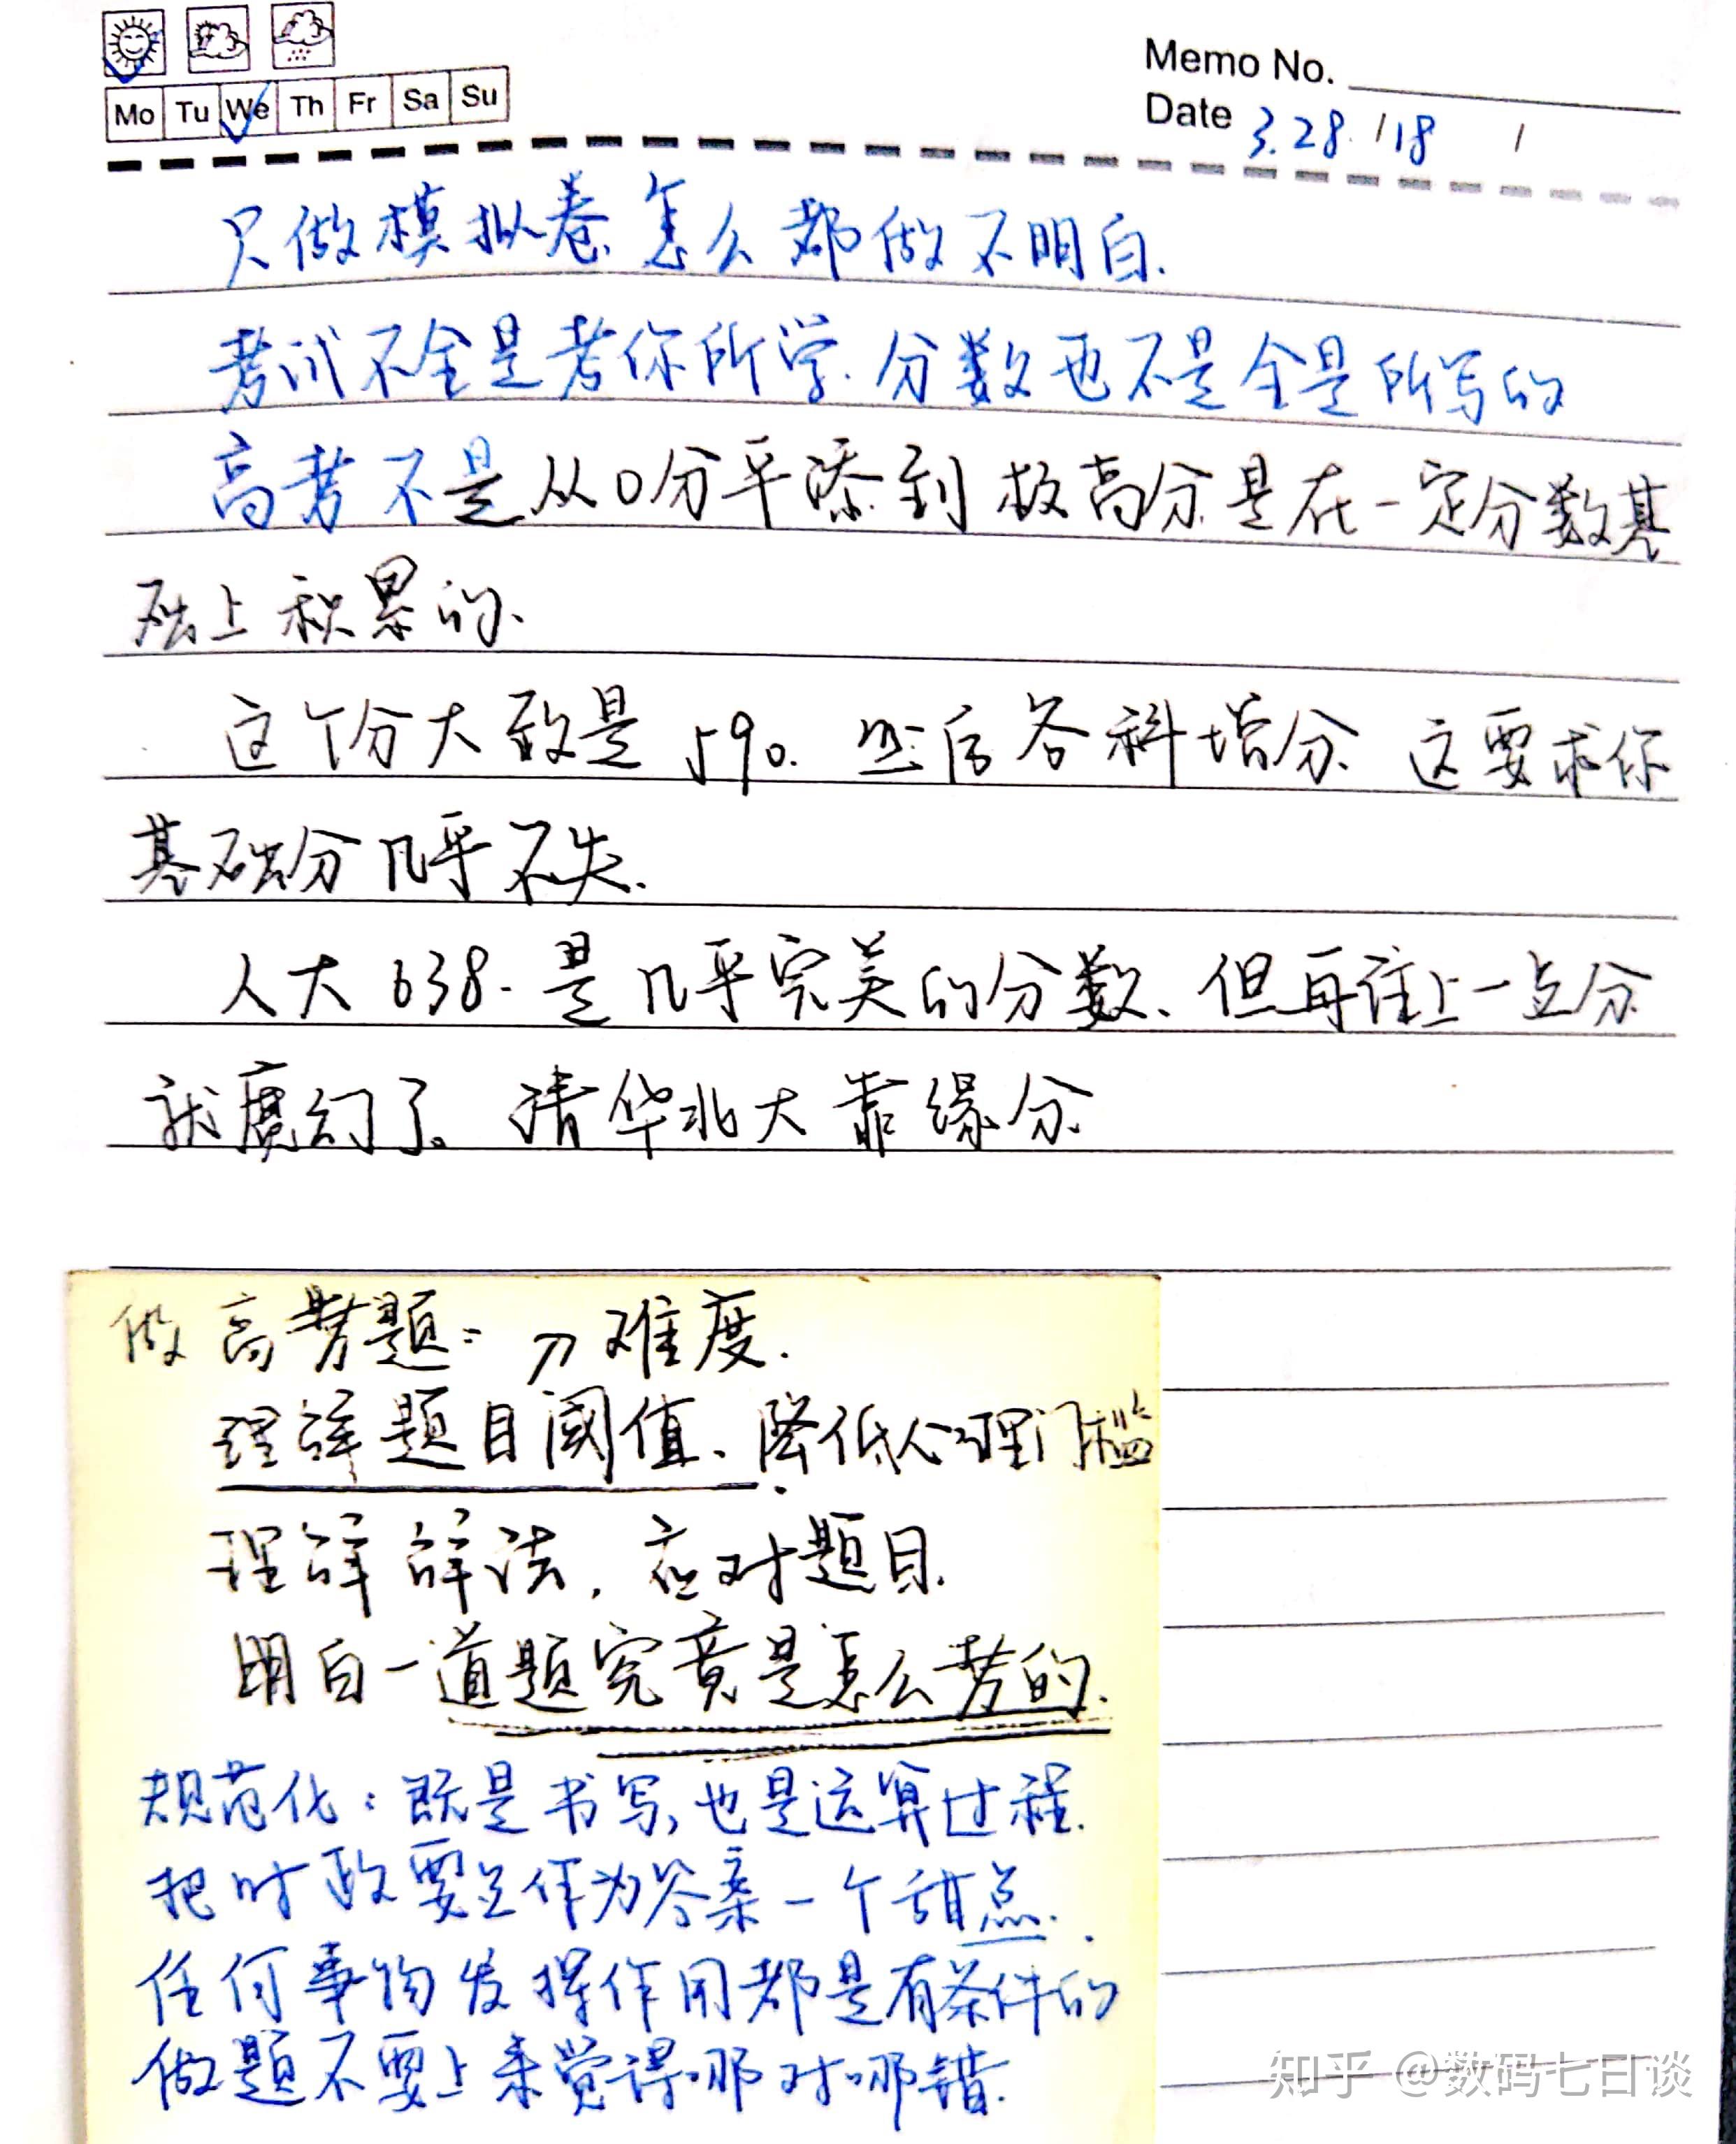 Memo No.
Mo Tu We Th Fr Sa Su
Date 3.28./18 /
只做模拟卷怎么都做不明白.
考试不全是考你所学.分数也不是全是所写的
高考不是从0分平添到极高分.是在一定分数基
础上积累的、
这个分大致是590.然后各科增分.这要求你
基础分几乎不失.
人大638.是几乎完美的分数、但再往上一点分
就魔幻了。清华北大靠缘分.
做高考题: 难度.
理解题目阈值、降低心理门槛
理解解法,应对题目.
明白一道题究竟是怎么考的.
规范化:既是书写,也是运算过程.
把时政要点作为答案一个甜点.
任何事物发挥作用都是有条件的
做题不要上来觉得哪对哪错.
知乎 @数码七日谈